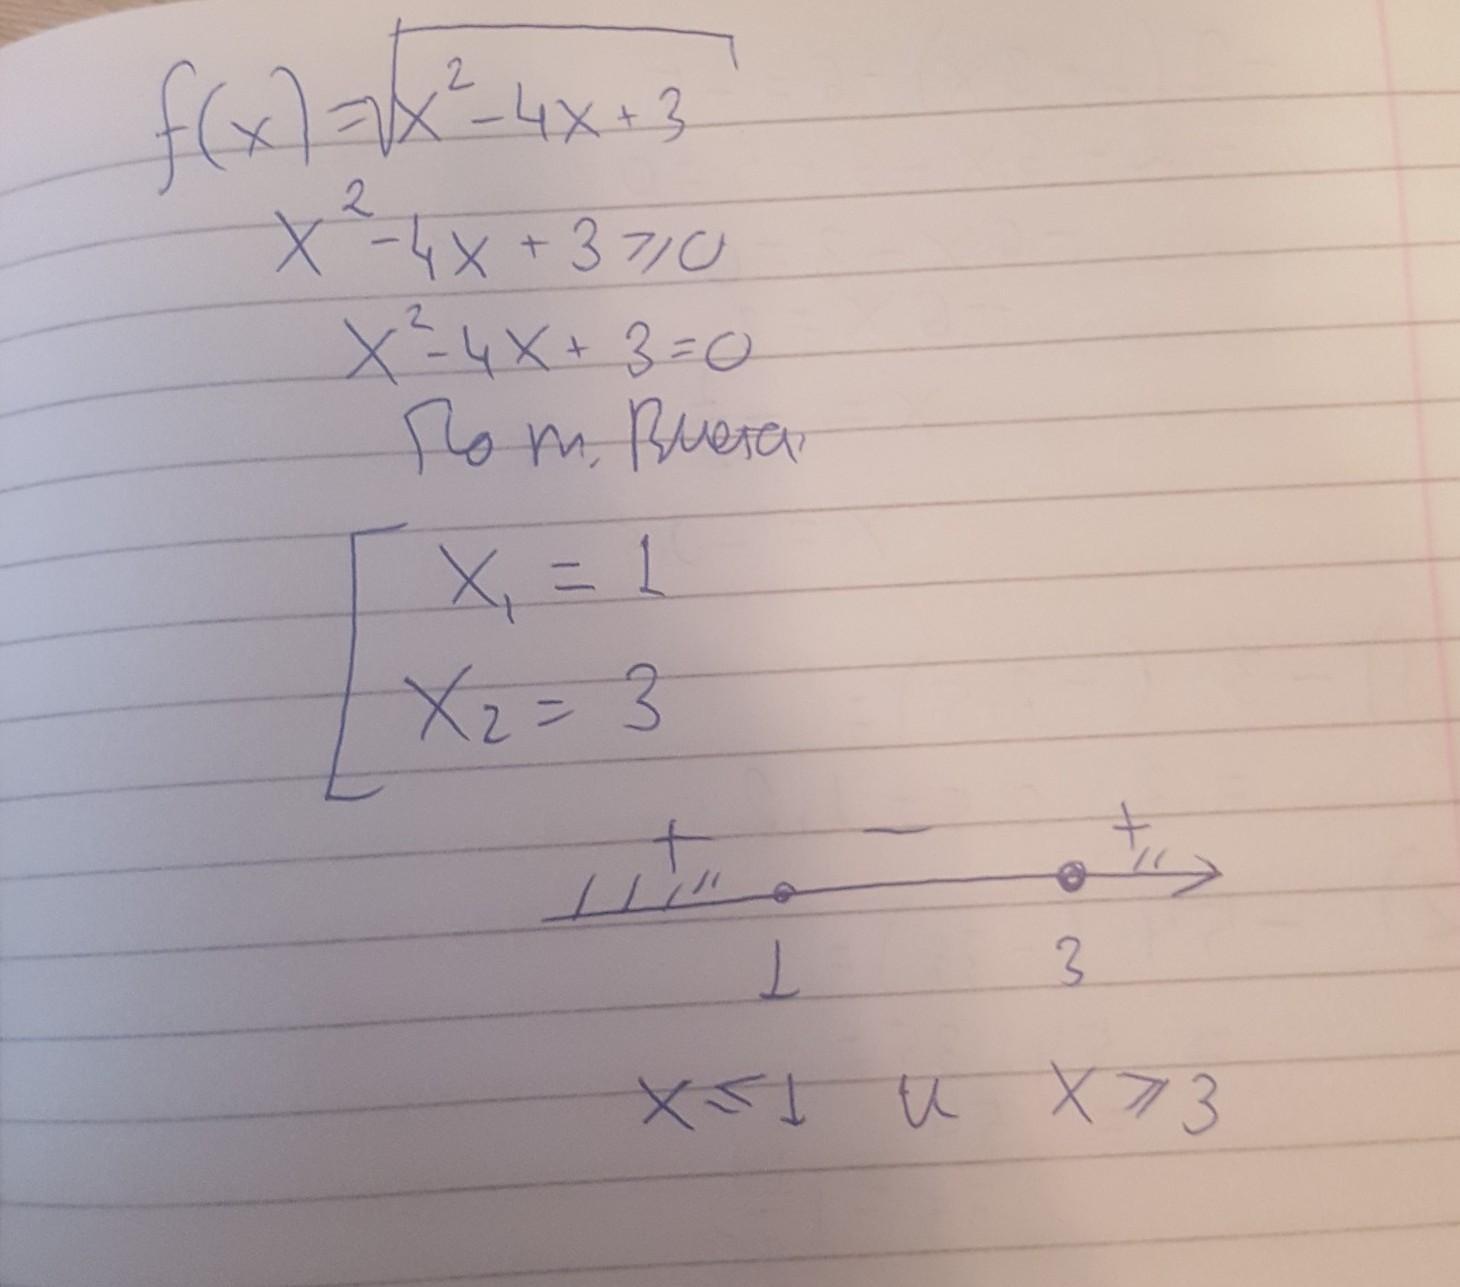 f(x)=√x²-4x+3
x²-4x+3⩾0
x²-4x+3=0
По т. Виета
x₁=1
x₂=3
+ - +
1 3
x⩽1 и x⩾3